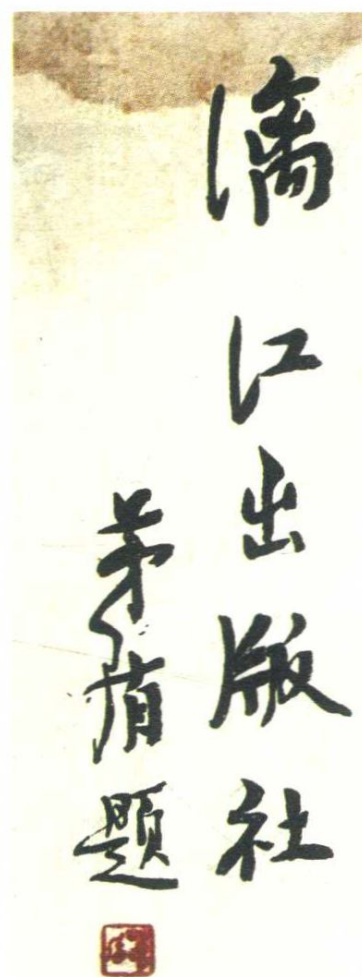 漓江出版社
茅盾题